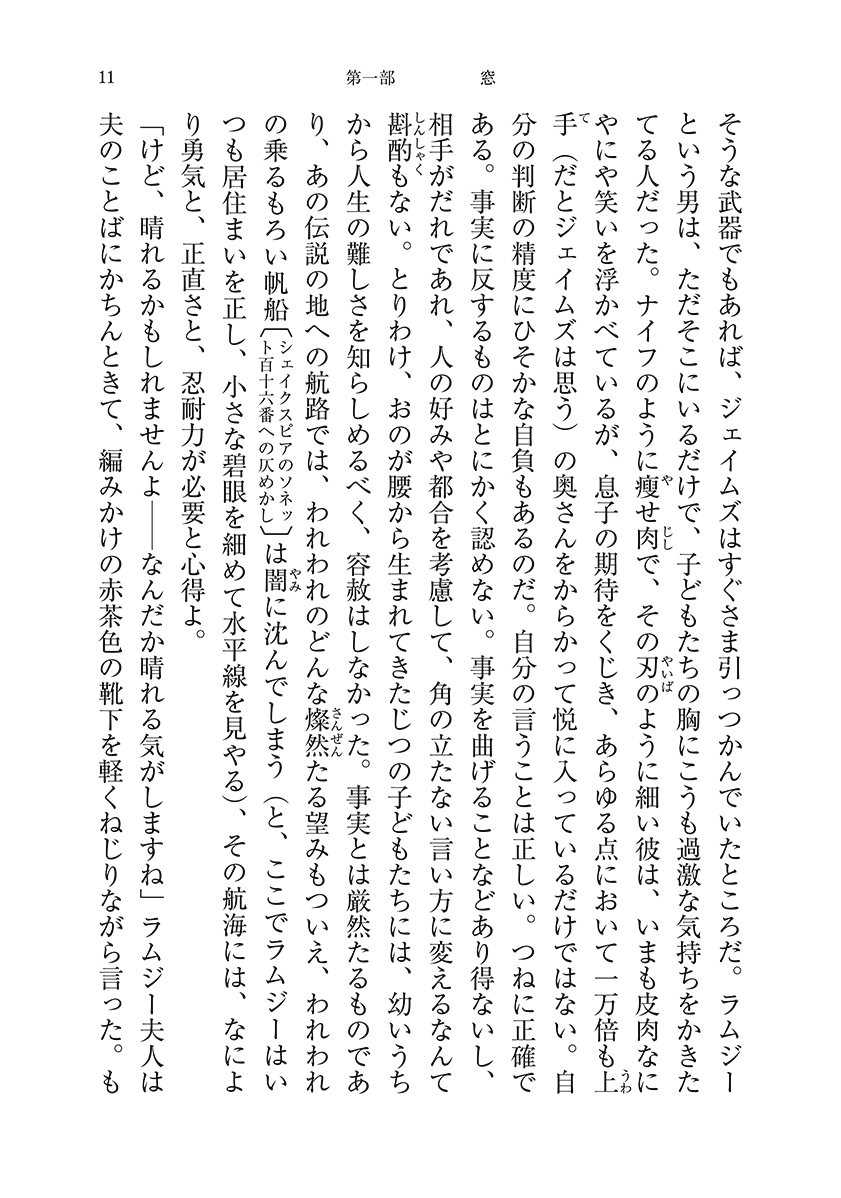 11
第一部　窓
そうな武器でもあれば、ジェイムズはすぐさま引っつかんでいたところだ。ラムジー
という男は、ただそこにいるだけで、子どもたちの胸にこうも過激な気持ちをかきた
てる人だった。ナイフのように痩せ肉で、その刃のように細い彼は、いまも皮肉なに
やにや笑いを浮かべているが、息子の期待をくじき、あらゆる点において一万倍も上
手（だとジェイムズは思う）の奥さんをからかって悦に入っているだけではない。自
分の判断の精度にひそかな自負もあるのだ。自分の言うことは正しい。つねに正確で
ある。事実に反するものはとにかく認めない。事実を曲げることなどあり得ないし、
相手がだれであれ、人の好みや都合を考慮して、角の立たない言い方に変えるなんて
斟酌もない。とりわけ、おのが腰から生まれてきたじつの子どもたちには、幼いうち
から人生の難しさを知らしめるべく、容赦はしなかった。事実とは厳然たるものであ
り、あの伝説の地への航路では、われわれのどんな燦然たる望みもついえ、われわれ
の乗るもろい帆船〔シェイクスピアのソネット百十六番への仄めかし〕は闇に沈んでしまう（と、ここでラムジーはい
つも居住まいを正し、小さな碧眼を細めて水平線を見やる）、その航海には、なによ
り勇気と、正直さと、忍耐力が必要と心得よ。
「けど、晴れるかもしれませんよ――なんだか晴れる気がしますね」ラムジー夫人は
夫のことばにかちんときて、編みかけの赤茶色の靴下を軽くねじりながら言った。も